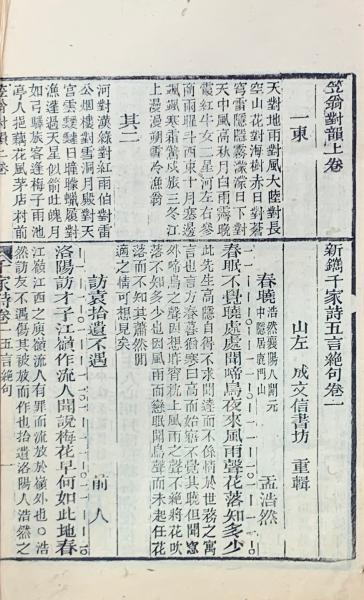 笠翁對韻上卷
一東
天對地雨對風大陸對長
空山花對海樹赤日對蒼
穹雷隱隱霧濛濛日下對
天中風高秋月白雨霽晚
霞紅牛女二星河左右參
商兩曜斗西東十月塞邊
颯颯寒霜驚戍旅三冬江
上漫漫朔雪冷漁翁
其二
河對漢綠對紅雨伯對雷
公烟樓對雪洞月殿對天
宮雲靉靆日曈曚蠟屐對
漁蓬過天星似箭吐魄月
如弓驛旅客逢梅子雨池
亭人挹藕花風茅店村前
新鐫千家詩五言絕句卷一
山左 成文信書坊 重輯
春曉 浩然襄陽人開元中隱居鹿門山 孟浩然
春眠不覺曉處處聞啼鳥夜來風雨聲花落知多少
此先生高隱自得不求聞達而不係情於世務之寓
言也言方春暮猶寒日高而始寤不覺其曉但聞窗
外啼鳥之聲因想昨宵枕上風雨之聲不絕將花吹
落不知多少也因風雨而戀眠聞鳥聲而未起任花
落而不知其蕭然閒
適之情可想見矣
訪袁拾遺不遇 前人
洛陽訪才子江嶺作流人聞說梅花早何如此地春
江嶺江西之庾嶺流人有罪而流放於嶺外也○浩
然訪友不遇傷其被放而作也拾遺洛陽人浩然之
笠翁對韻上卷
千家詩卷一 五言絕句 一